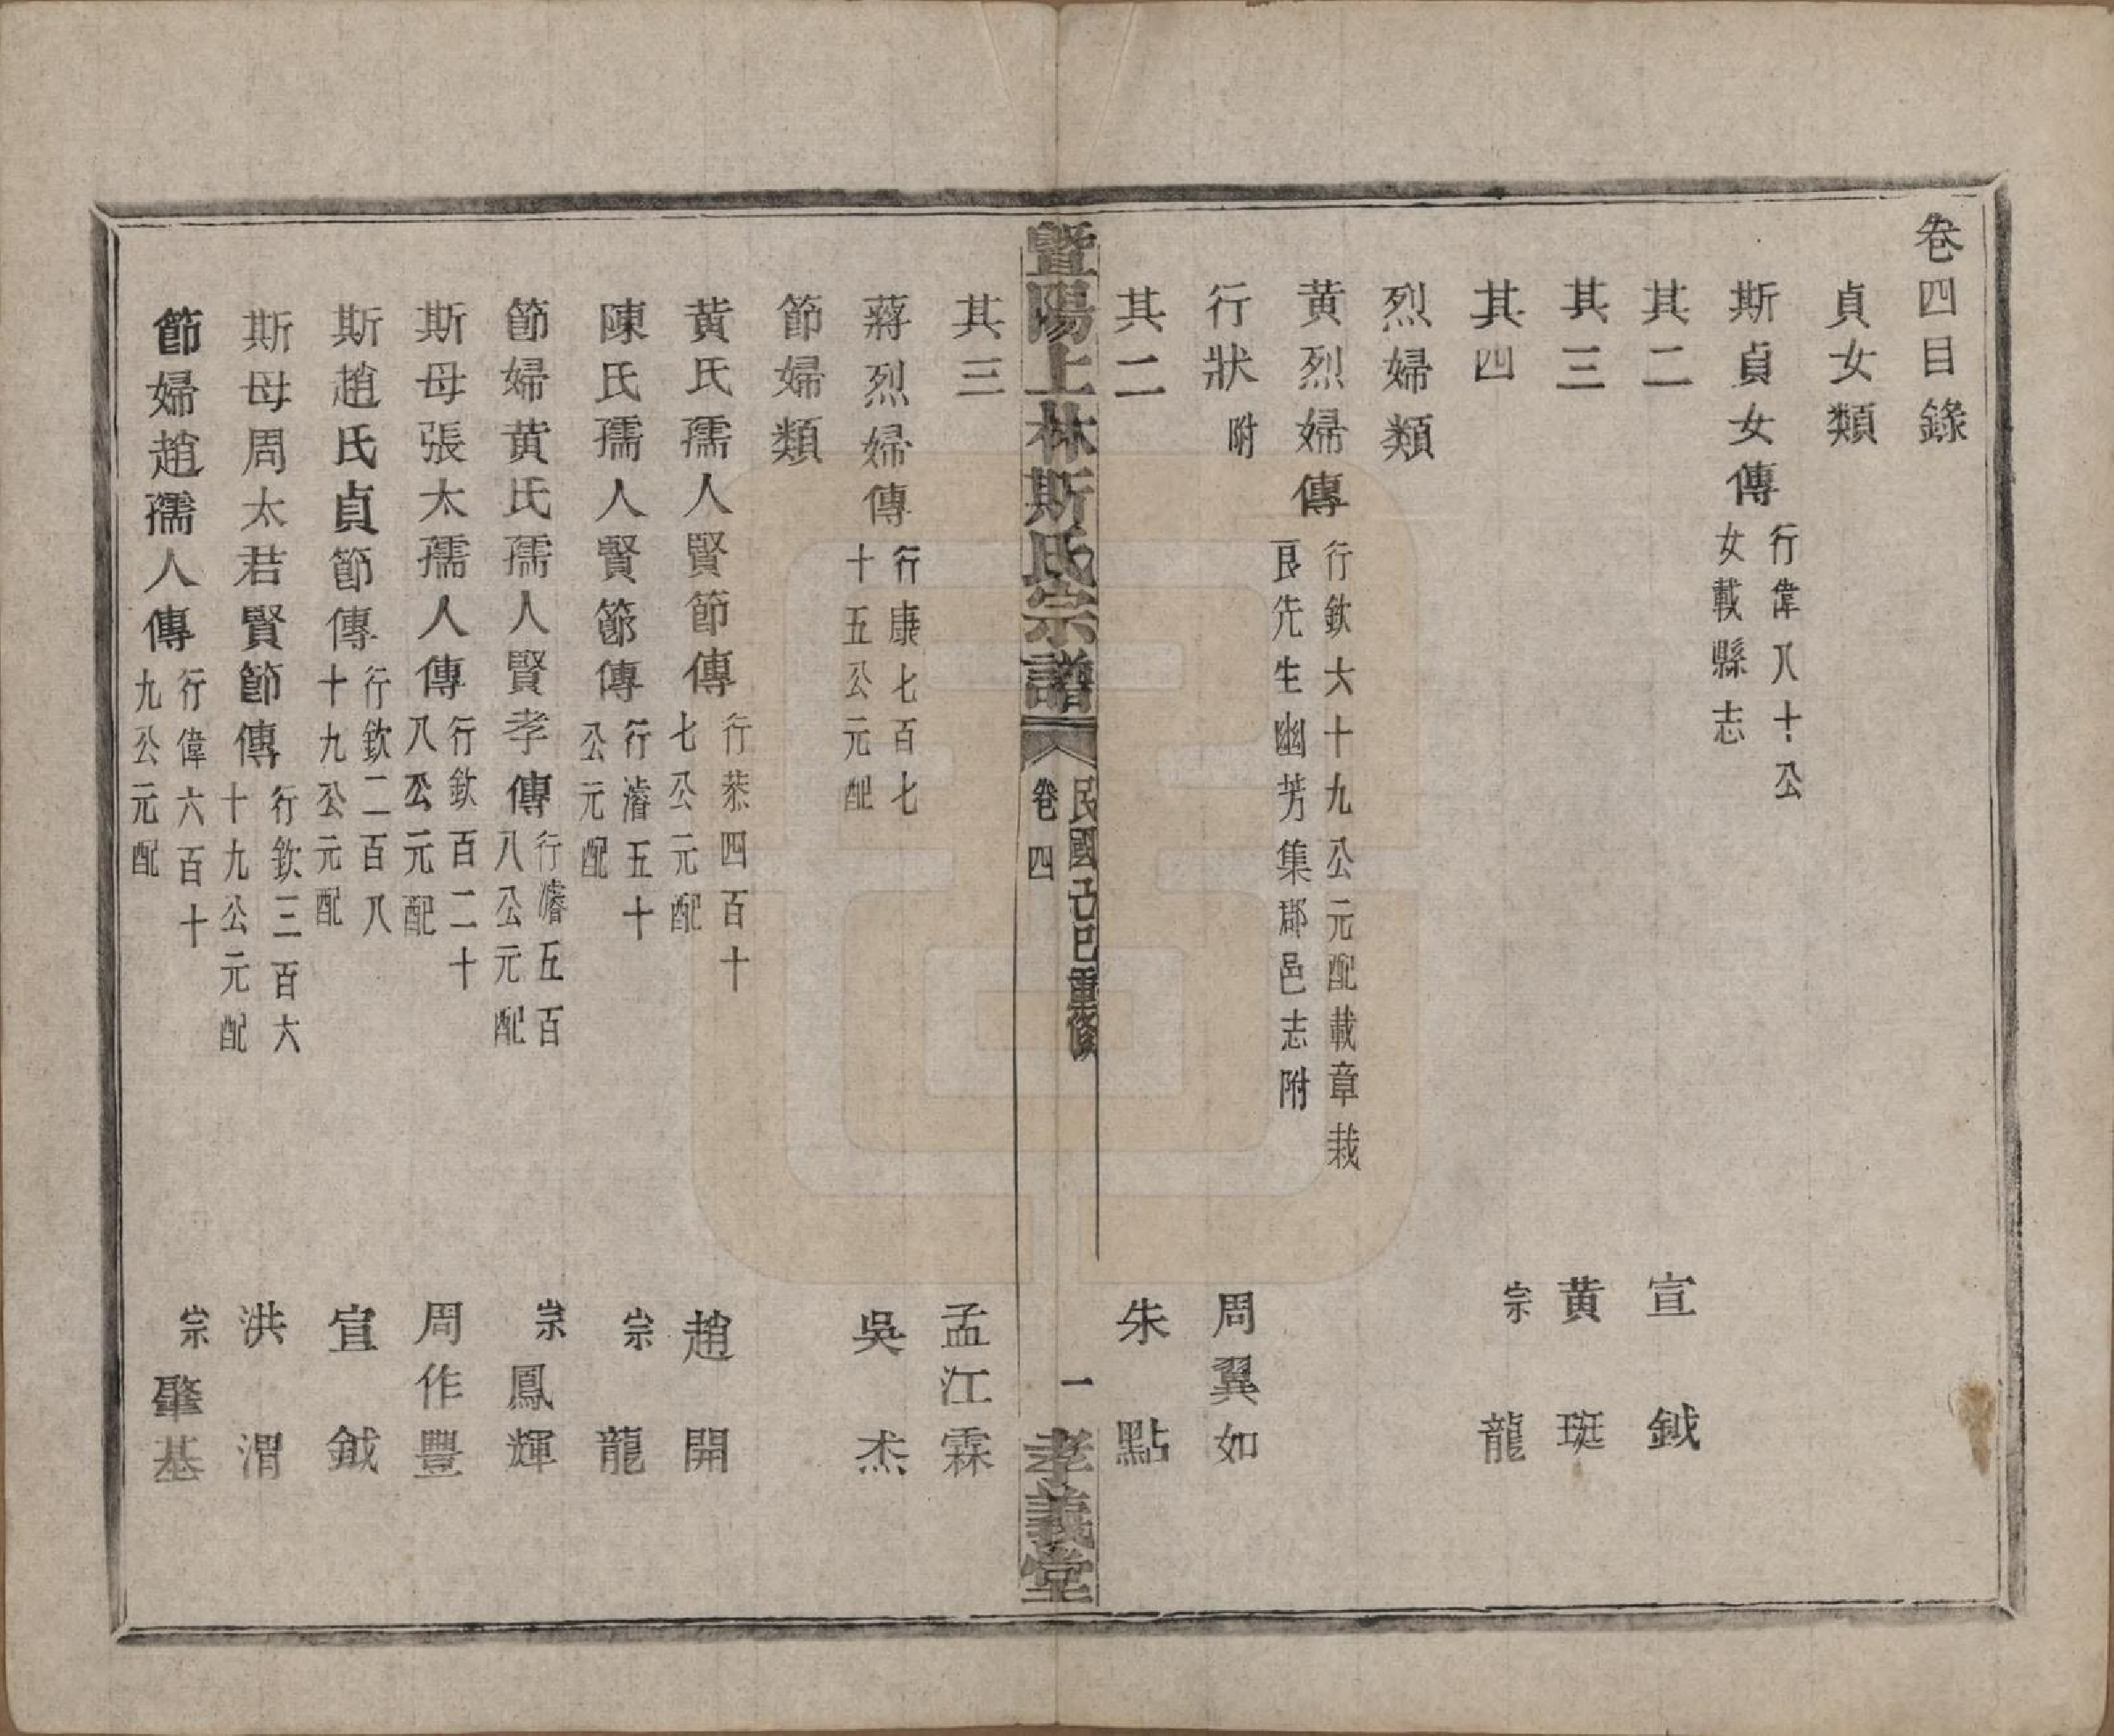 卷四目錄
貞女類
斯貞女傳 行偉八十公女載縣志
其二 宣鉞
其三 黃珽
其四 宗龍
烈婦類
黃烈婦傳 行欽六十九公元配載章栽良先生幽芳集郡邑志附
行狀附 周翼如
其二 朱點
暨陽上林斯氏宗譜 卷四 民國己巳重修 一 孝義堂
其三 孟江霖
蔣烈婦傳 行康七百七十五公元配 吳杰
節婦類
黃氏孺人賢節傳 行恭四百十七公元配 趙開
陳氏孺人賢節傳 行濬五十公元配 宗龍
節婦黃氏孺人賢孝傳 行濬五百八公元配 宗鳳輝
斯母張太孺人傳 行欽百二十八公元配 周作豐
斯趙氏貞節傳 行欽二百八十九公元配 宣鉞
斯母周太君賢節傳 行欽三百六十九公元配 洪渭
節婦趙孺人傳 行偉六百十九公元配 宗肇基